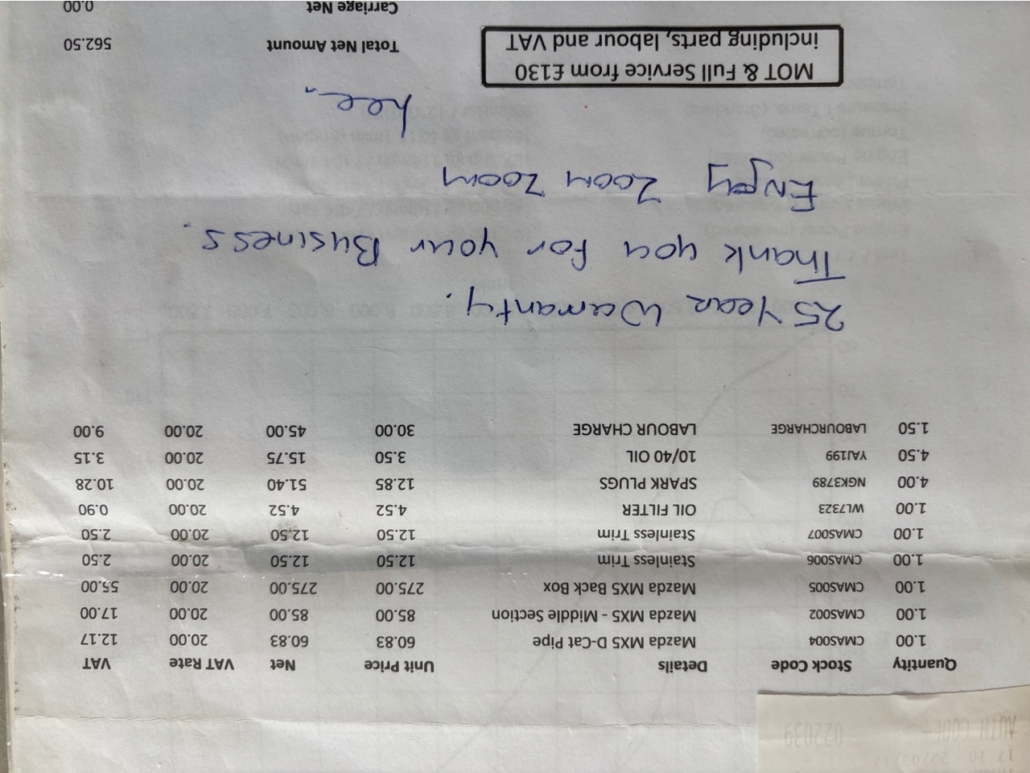 Quantity Stock Code Details Unit Price Net VAT Rate VAT
1.00 CMAS004 Mazda MX5 D-Cat Pipe 60.83 60.83 20.00 12.17
1.00 CMAS002 Mazda MX5 - Middle Section 85.00 85.00 20.00 17.00
1.00 CMAS005 Mazda MX5 Back Box 275.00 275.00 20.00 55.00
1.00 CMAS006 Stainless Trim 12.50 12.50 20.00 2.50
1.00 CMAS007 Stainless Trim 12.50 12.50 20.00 2.50
1.00 WL7323 OIL FILTER 4.52 4.52 20.00 0.90
4.00 NGK3789 SPARK PLUGS 12.85 51.40 20.00 10.28
4.50 YAJ199 10/40 OIL 3.50 15.75 20.00 3.15
1.50 LABOURCHARGE LABOUR CHARGE 30.00 45.00 20.00 9.00
25 Year Warranty.
Thank you for your Business.
Enjoy Zoom Zoom
Lee.
MOT & Full Service from £130
including parts, labour and VAT
Total Net Amount 562.50
Carriage Net 0.00
AUTH CODE 022039